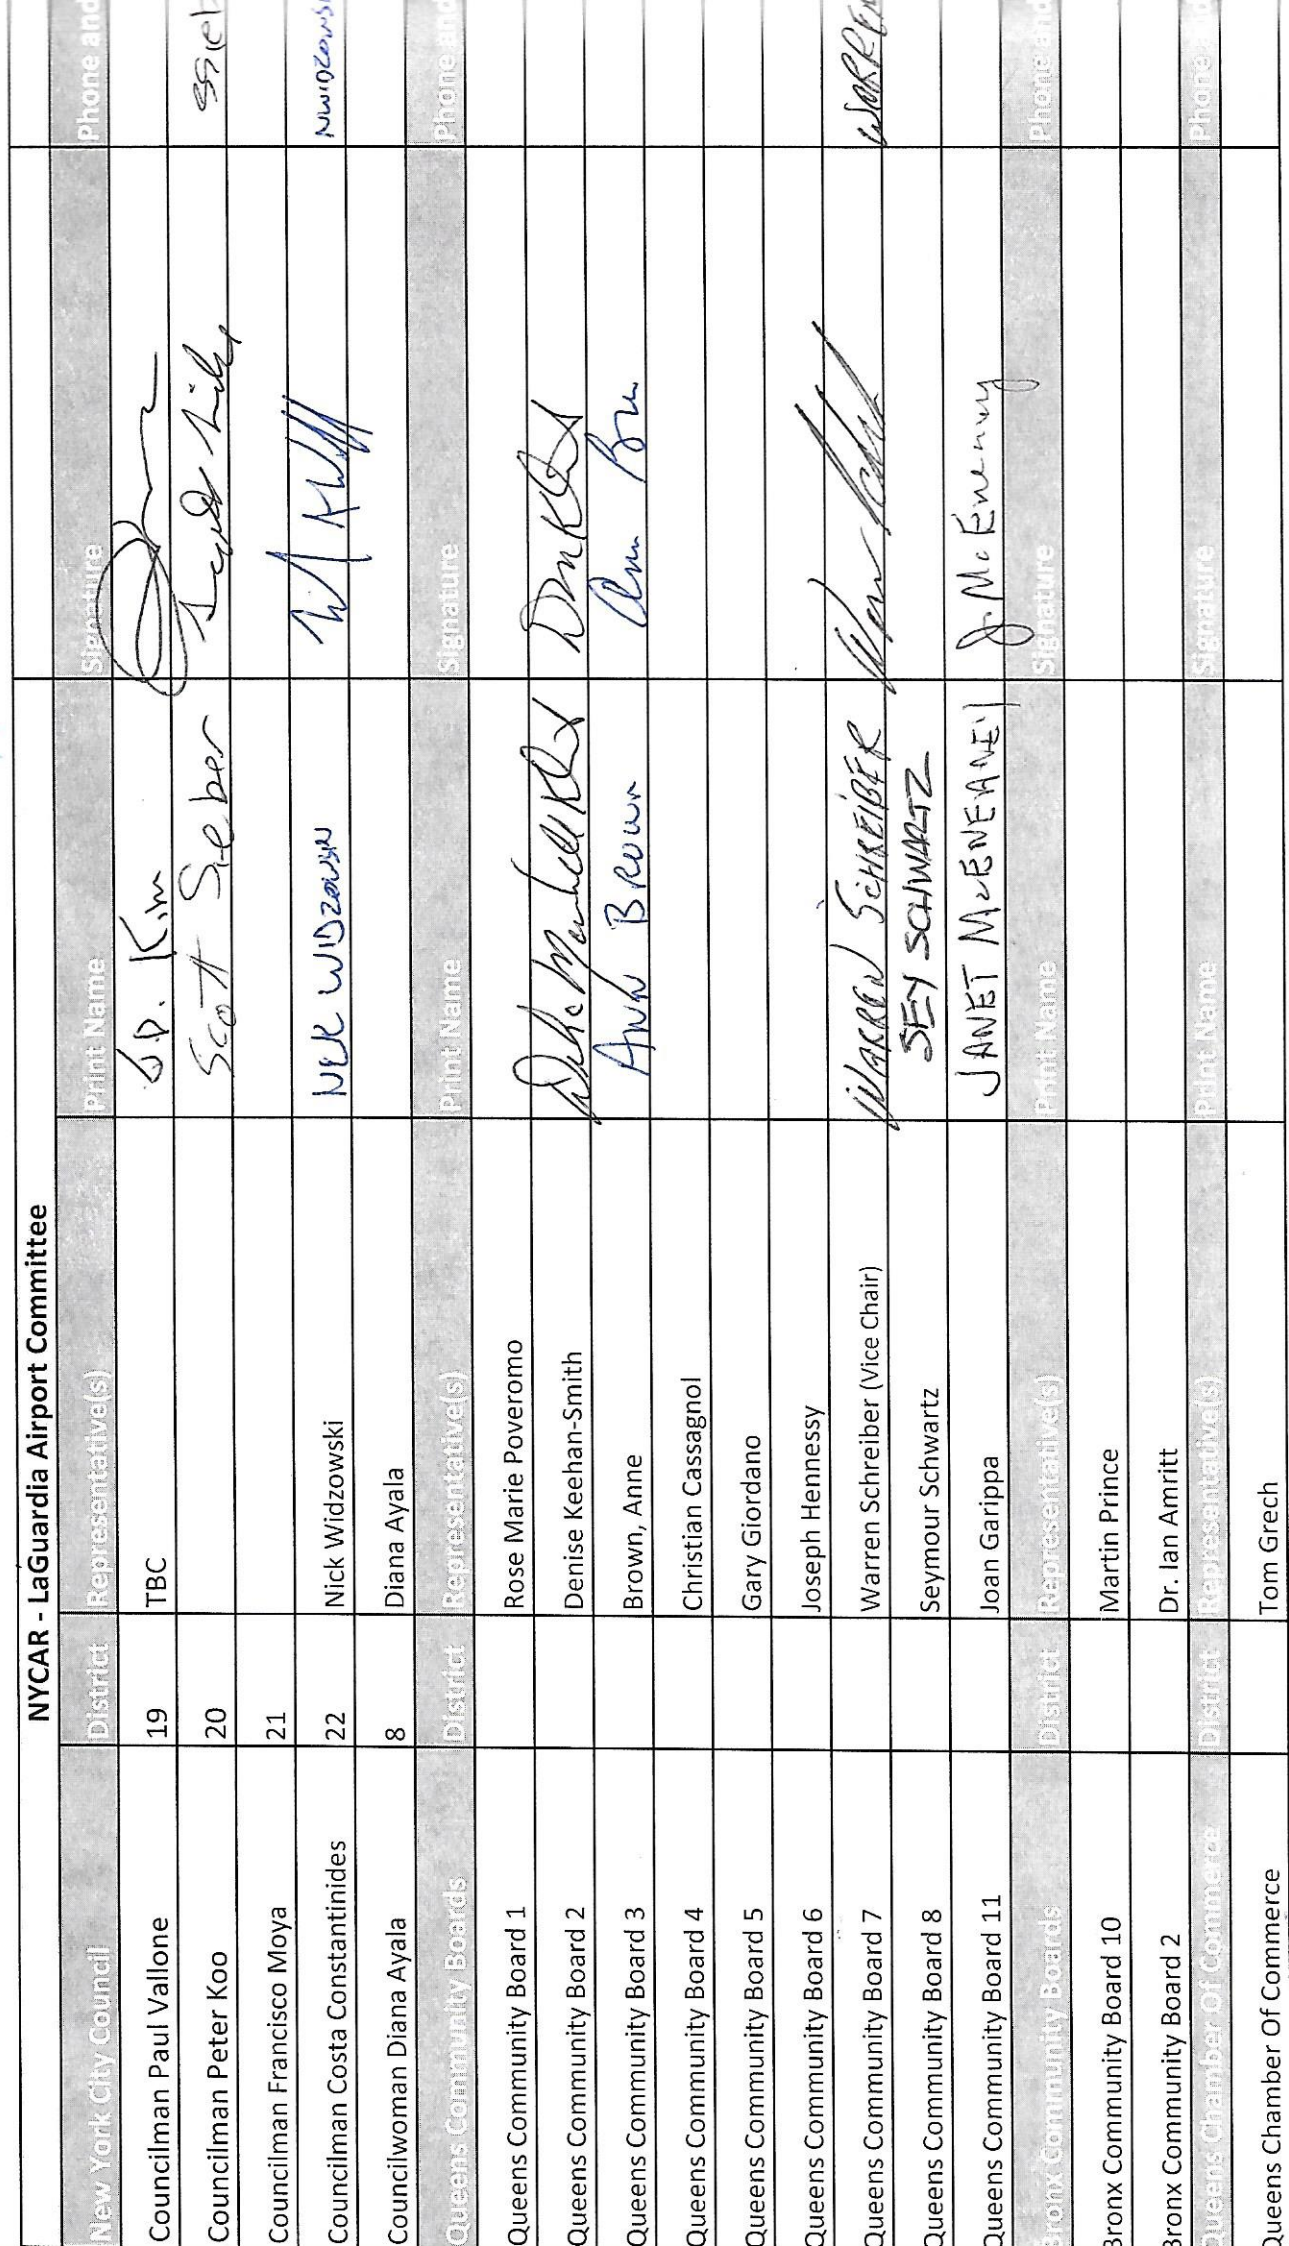 NYCAR - LaGuardia Airport Committee
New York City Council District Representative(s) Print Name Signature Phone and
Councilman Paul Vallone 19 TBC J.P. Kim
Councilman Peter Koo 20 Scott Sieber
Councilman Francisco Moya 21
Councilman Costa Constantinides 22 Nick Widzowski
Councilwoman Diana Ayala 8 Diana Ayala
Queens Community Boards District Representative(s) Print Name Signature Phone and
Queens Community Board 1 Rose Marie Poveromo
Queens Community Board 2 Denise Keehan-Smith
Queens Community Board 3 Brown, Anne Ann Brown
Queens Community Board 4 Christian Cassagnol
Queens Community Board 5 Gary Giordano
Queens Community Board 6 Joseph Hennessy
Queens Community Board 7 Warren Schreiber (Vice Chair) WARREN SCHREIBER WARREN
Queens Community Board 8 Seymour Schwartz SEY SCHWARTZ
Queens Community Board 11 Joan Garippa JANET McENEANEY J. McEneaney
Bronx Community Boards District Representative(s) Print Name Signature Phone and
Bronx Community Board 10 Martin Prince
Bronx Community Board 2 Dr. Ian Amritt
Queens Chamber Of Commerce District Representative(s) Print Name Signature Phone
Queens Chamber Of Commerce Tom Grech